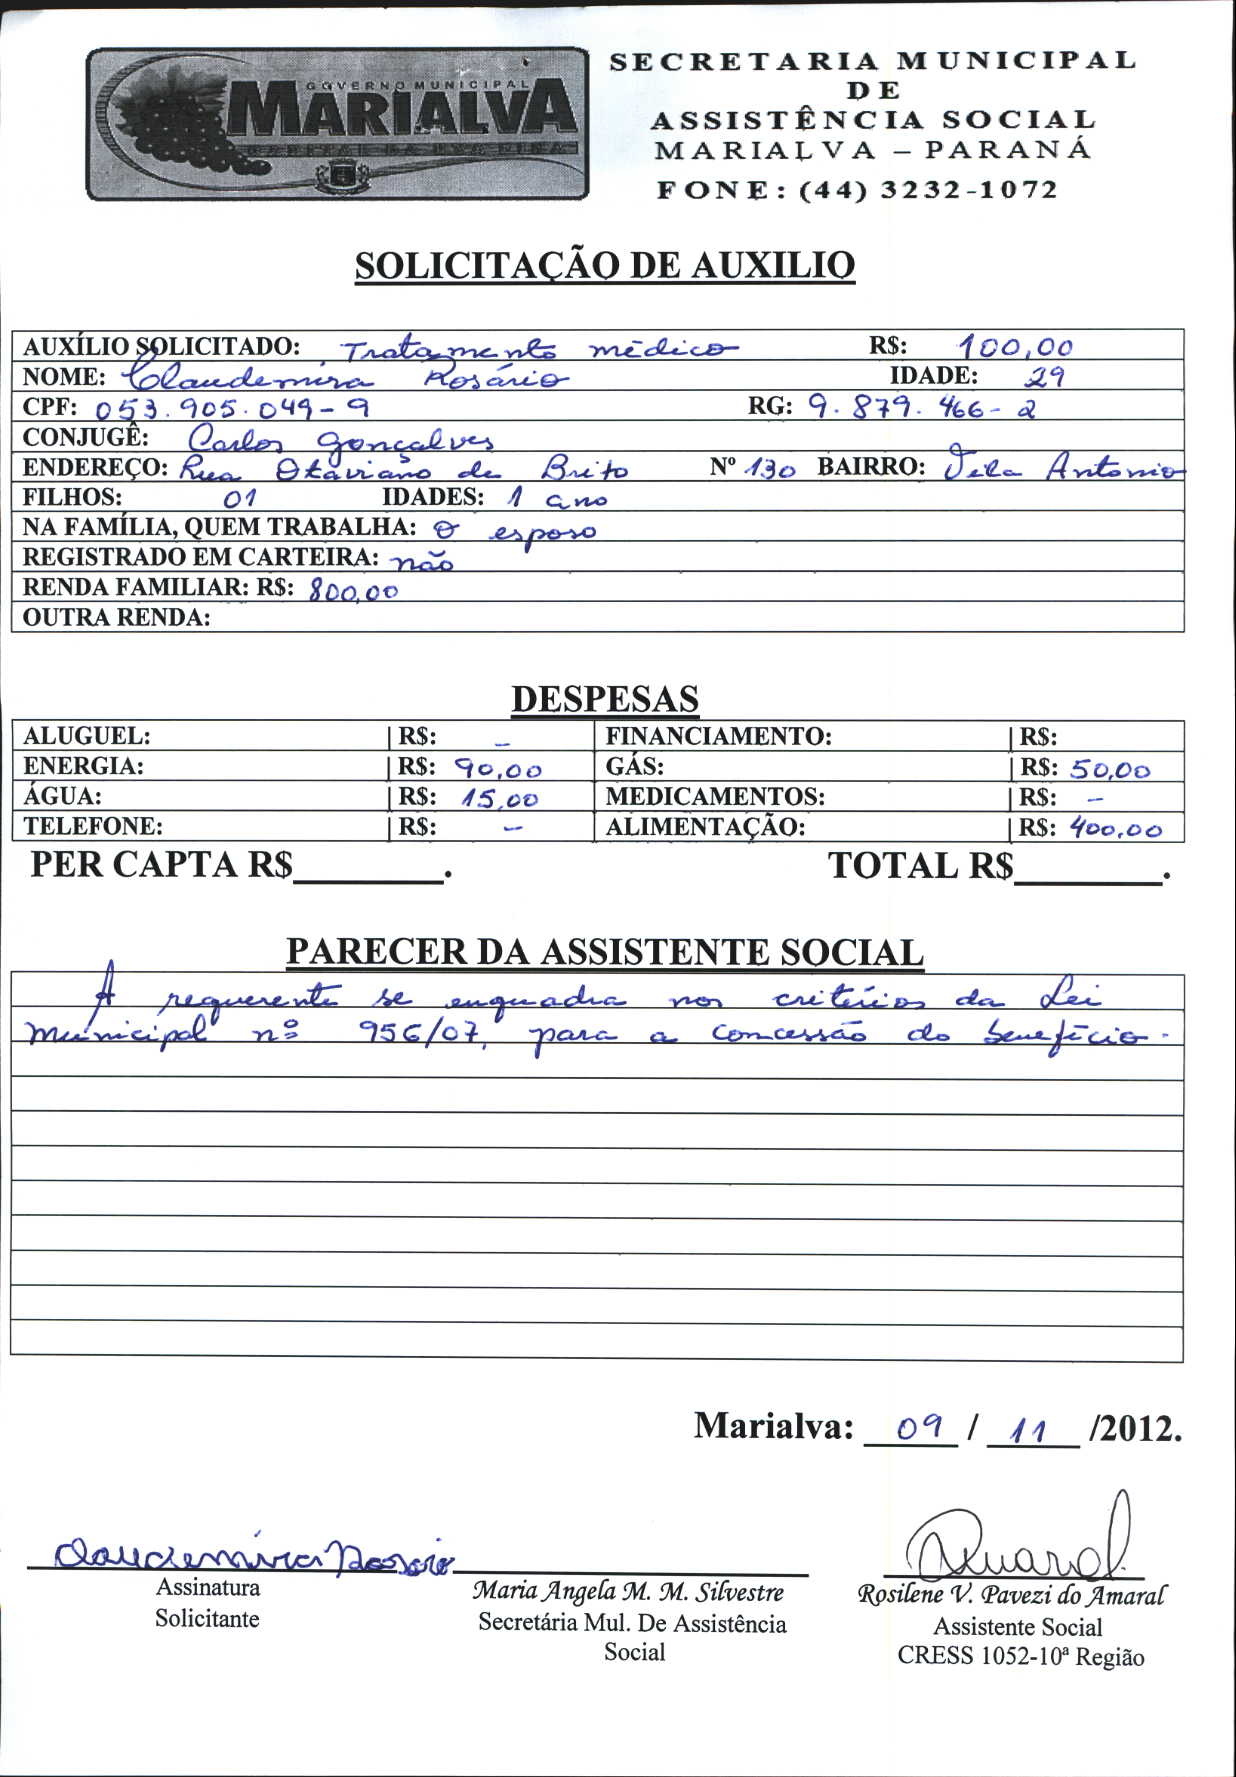 GOVERNO MUNICIPAL
MARIALVA
CAPITAL DA UVA FINA
SECRETARIA MUNICIPAL
DE
ASSISTÊNCIA SOCIAL
MARIALVA – PARANÁ
FONE: (44) 3232-1072
SOLICITAÇÃO DE AUXILIO
AUXÍLIO SOLICITADO: Tratamento médico R$: 100,00
NOME: Claudemira Rosário IDADE: 29
CPF: 053.905.049-9 RG: 9.879.466-2
CONJUGÊ: Carlos Gonçalves
ENDEREÇO: Rua Otaviano de Brito Nº 130 BAIRRO: Vila Antonio
FILHOS: 01 IDADES: 1 ano
NA FAMÍLIA, QUEM TRABALHA: O esposo
REGISTRADO EM CARTEIRA: não
RENDA FAMILIAR: R$: 800,00
OUTRA RENDA:
DESPESAS
ALUGUEL: | R$: – FINANCIAMENTO: | R$:
ENERGIA: | R$: 90,00 GÁS: | R$: 50,00
ÁGUA: | R$: 15,00 MEDICAMENTOS: | R$: –
TELEFONE: | R$: – ALIMENTAÇÃO: | R$: 400,00
PER CAPTA R$________. TOTAL R$________.
PARECER DA ASSISTENTE SOCIAL
A requerente se enquadra nos critérios da Lei
Municipal nº 956/07, para a concessão do benefício.
Marialva: 09 / 11 /2012.
Claudemira Rosário
Assinatura
Solicitante
Maria Angela M. M. Silvestre
Secretária Mul. De Assistência
Social
RAmaral
Rosilene V. Pavezi do Amaral
Assistente Social
CRESS 1052-10ª Região